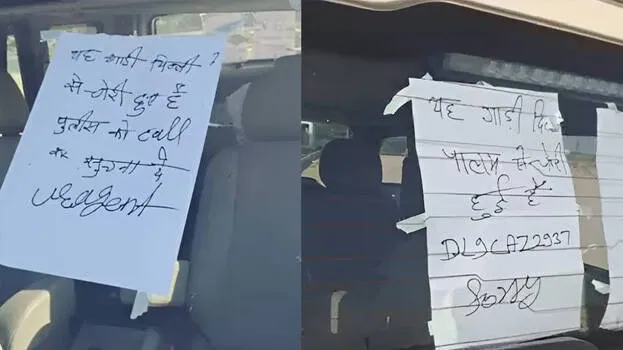 यह गाडी दिल्ली
से चोरी हुई है
पुलीस को call
कर सुचना दे
uragent
यह गाड़ी
पालम से चोरी
हुई है
DL9CAZ2937
Sorry